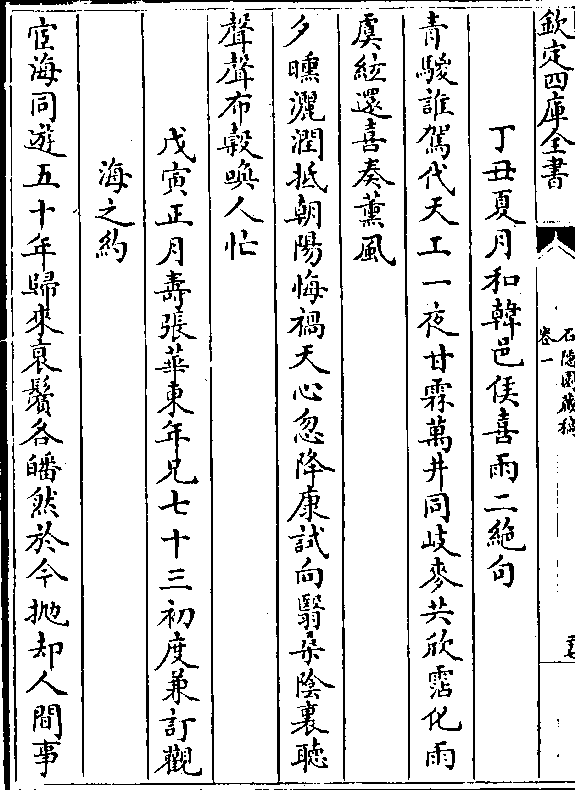 欽定四庫全書
石隱園藏稿
卷一
丁丑夏月和韓邑侯喜雨二絶句
青驄誰駕代天工一夜甘霖萬井同岐麥共欣霑化雨
虞絃還喜奏薰風
夕曛灑潤抵朝陽悔禍天心忽降康試向翳桑陰裏聽
聲聲布穀喚人忙
戊寅正月壽張華東年兄七十三初度兼訂觀
海之約
宦海同遊五十年歸來衰鬢各皤然於今抛却人間事